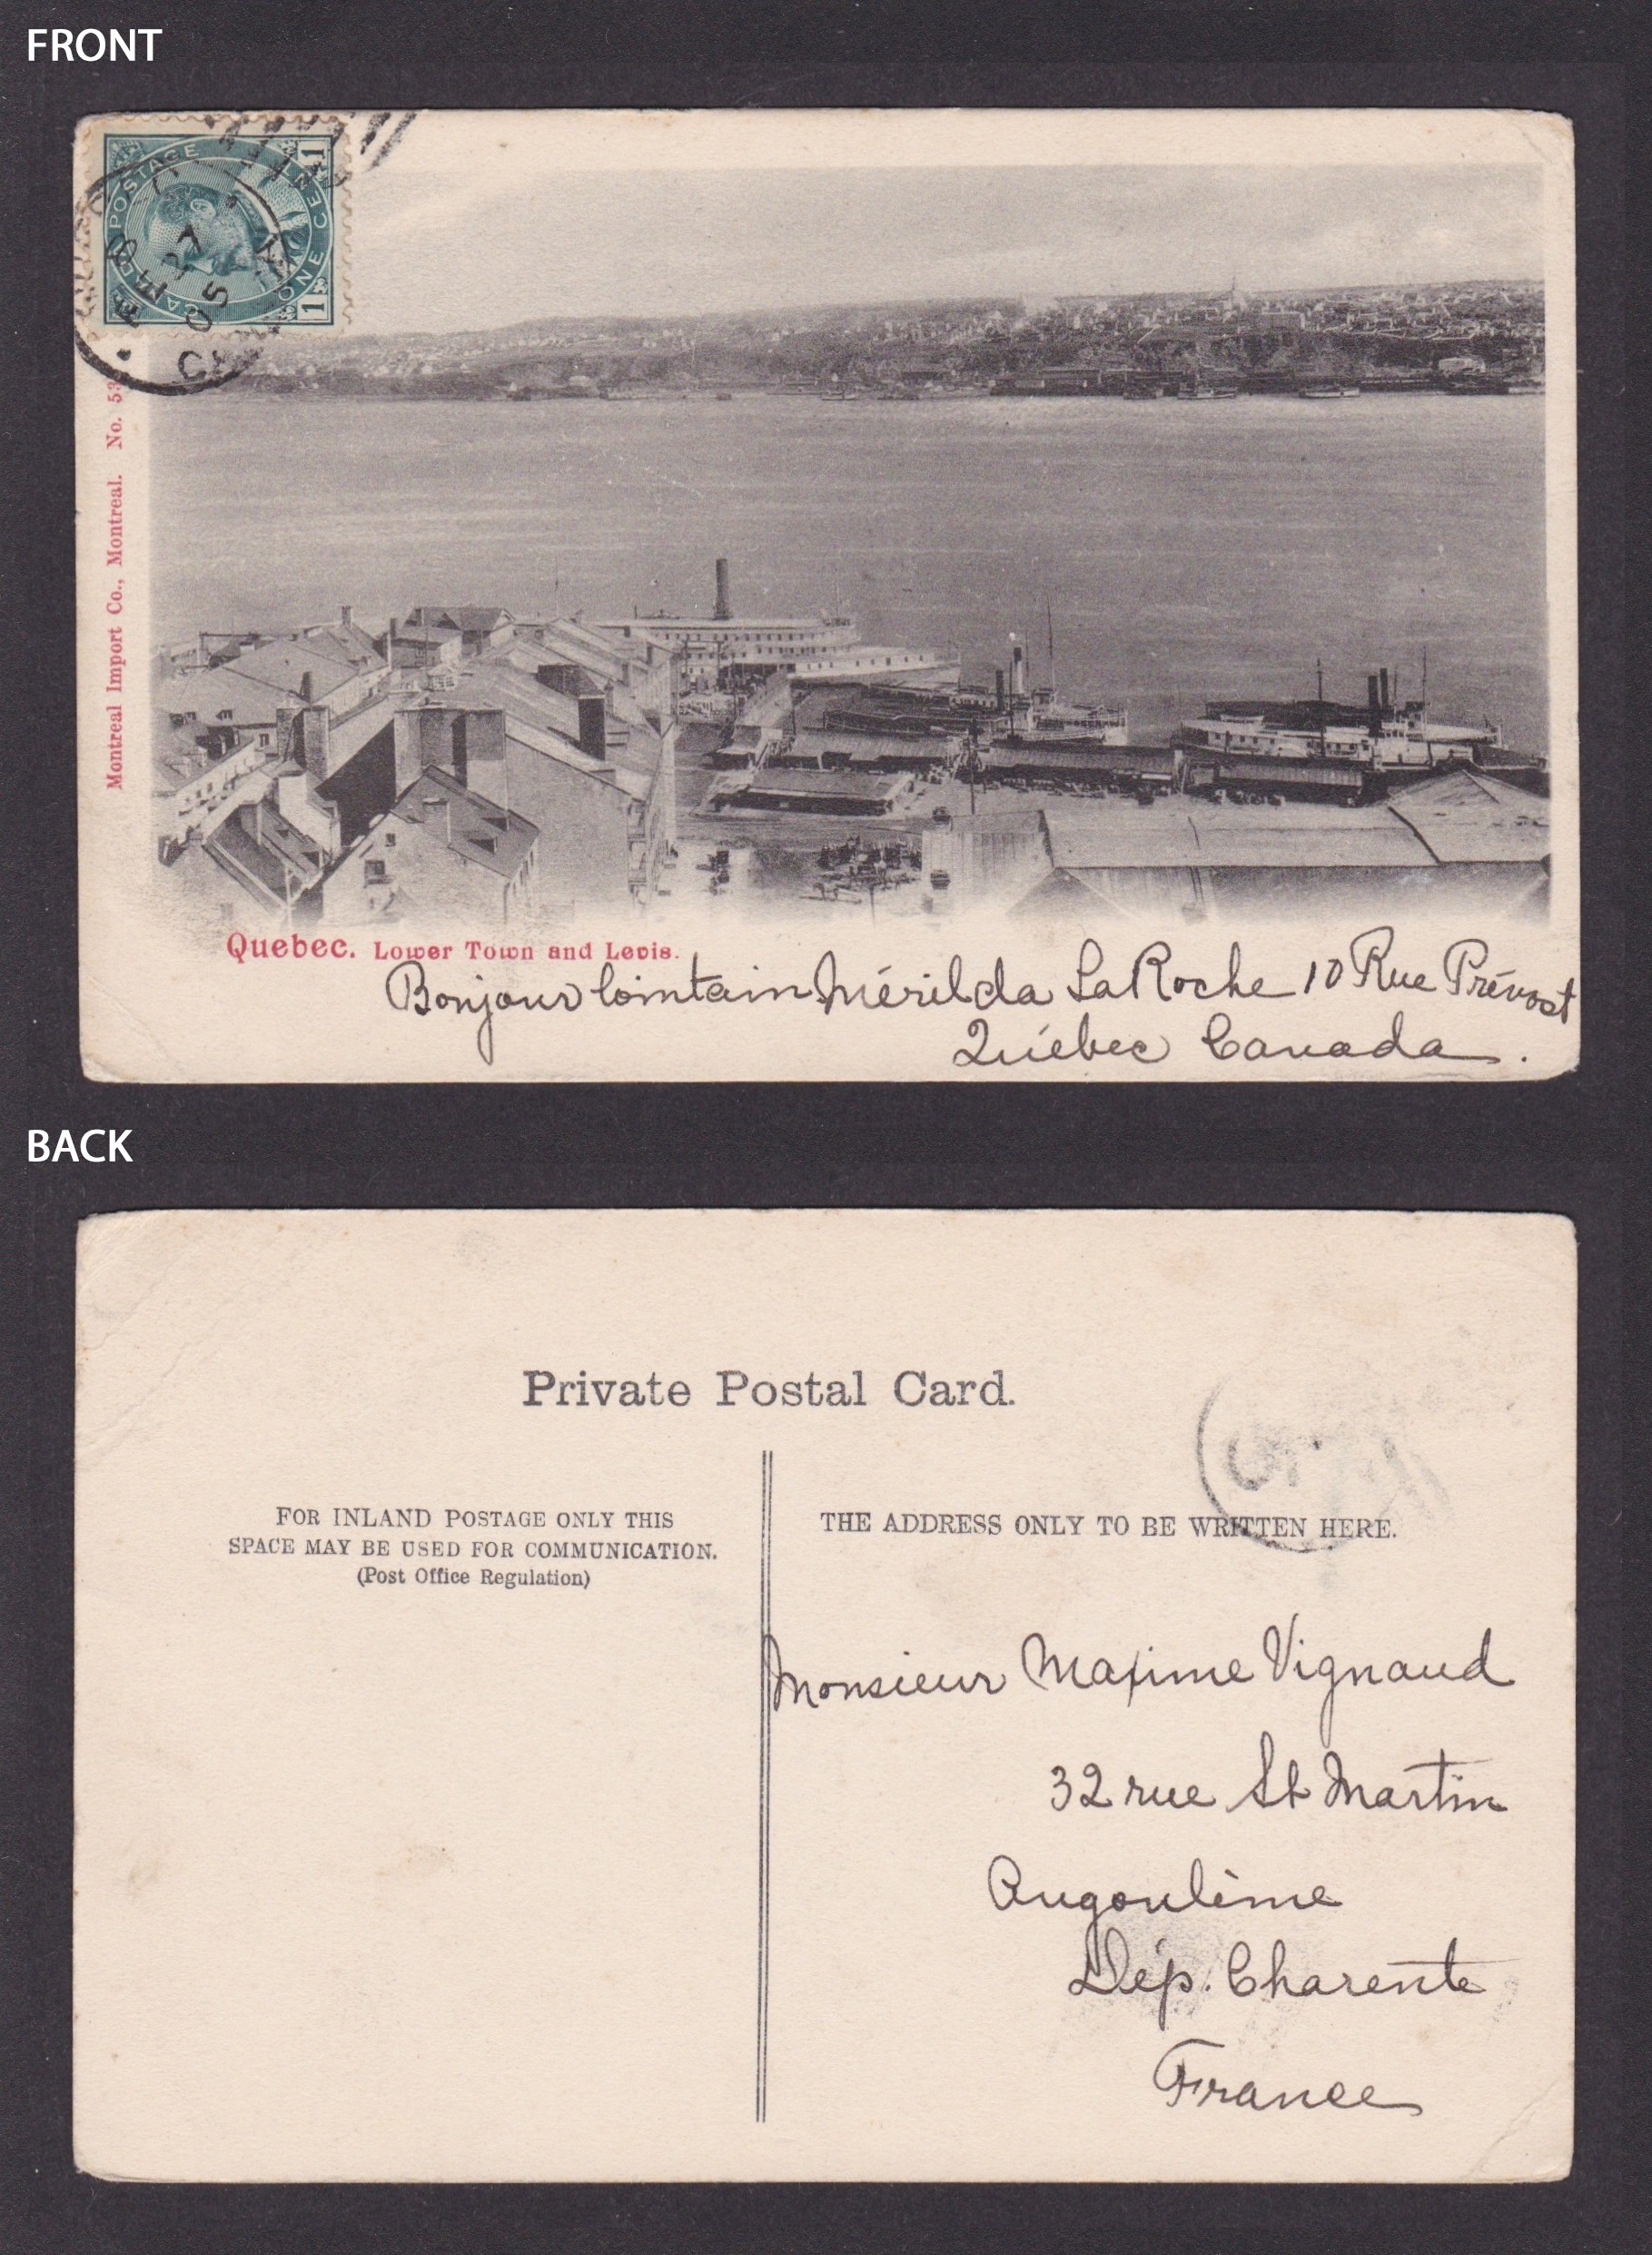 FRONT
CANADA POSTAGE
ONE CENT
1 1
FEB 27
05
Montreal Import Co., Montreal. No. 53
Quebec. Lower Town and Levis.
Bonjour lointain Mérilda LaRoche 10 Rue Prévost
Québec Canada.
BACK
Private Postal Card.
FOR INLAND POSTAGE ONLY THIS
SPACE MAY BE USED FOR COMMUNICATION.
(Post Office Regulation)
THE ADDRESS ONLY TO BE WRITTEN HERE.
Monsieur Maxime Vignaud
32 rue St Martin
Angoulème
Dép. Charente
France